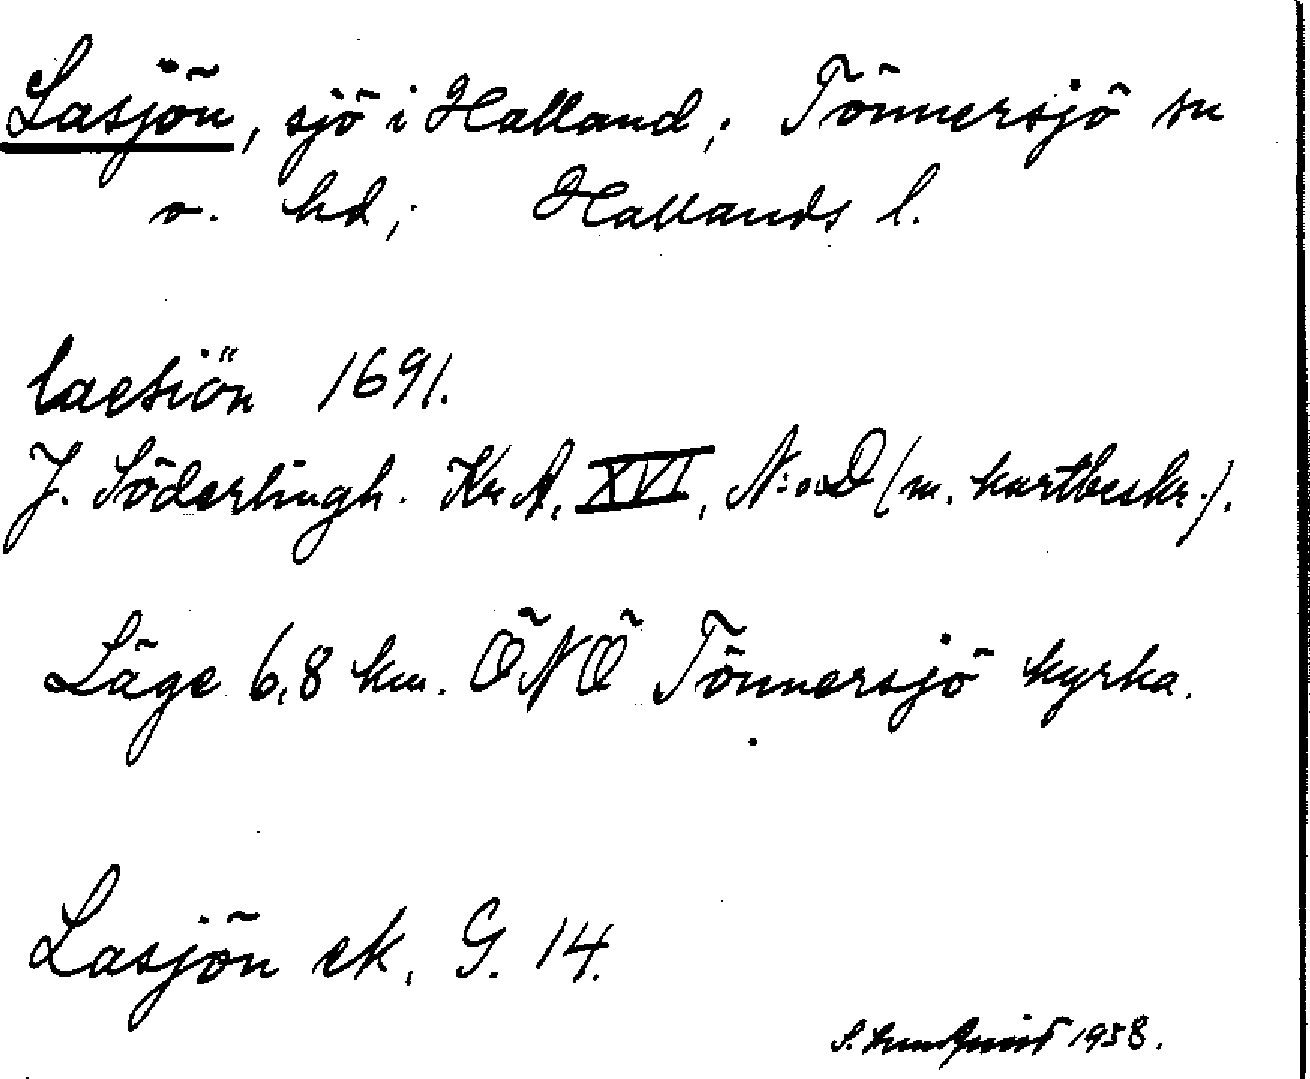 Lasjön, sjö i Halland; Tönnersjö sn
o. hd; Hallands l.
laesiön 1691.
J. Söderlingh. Kr.A. XVI, N:o D (m. kartbeskr.).
Läge 6,8 km. ÖNÖ Tönnersjö kyrka.
Lasjön ek. G. 14.
S. 1938.